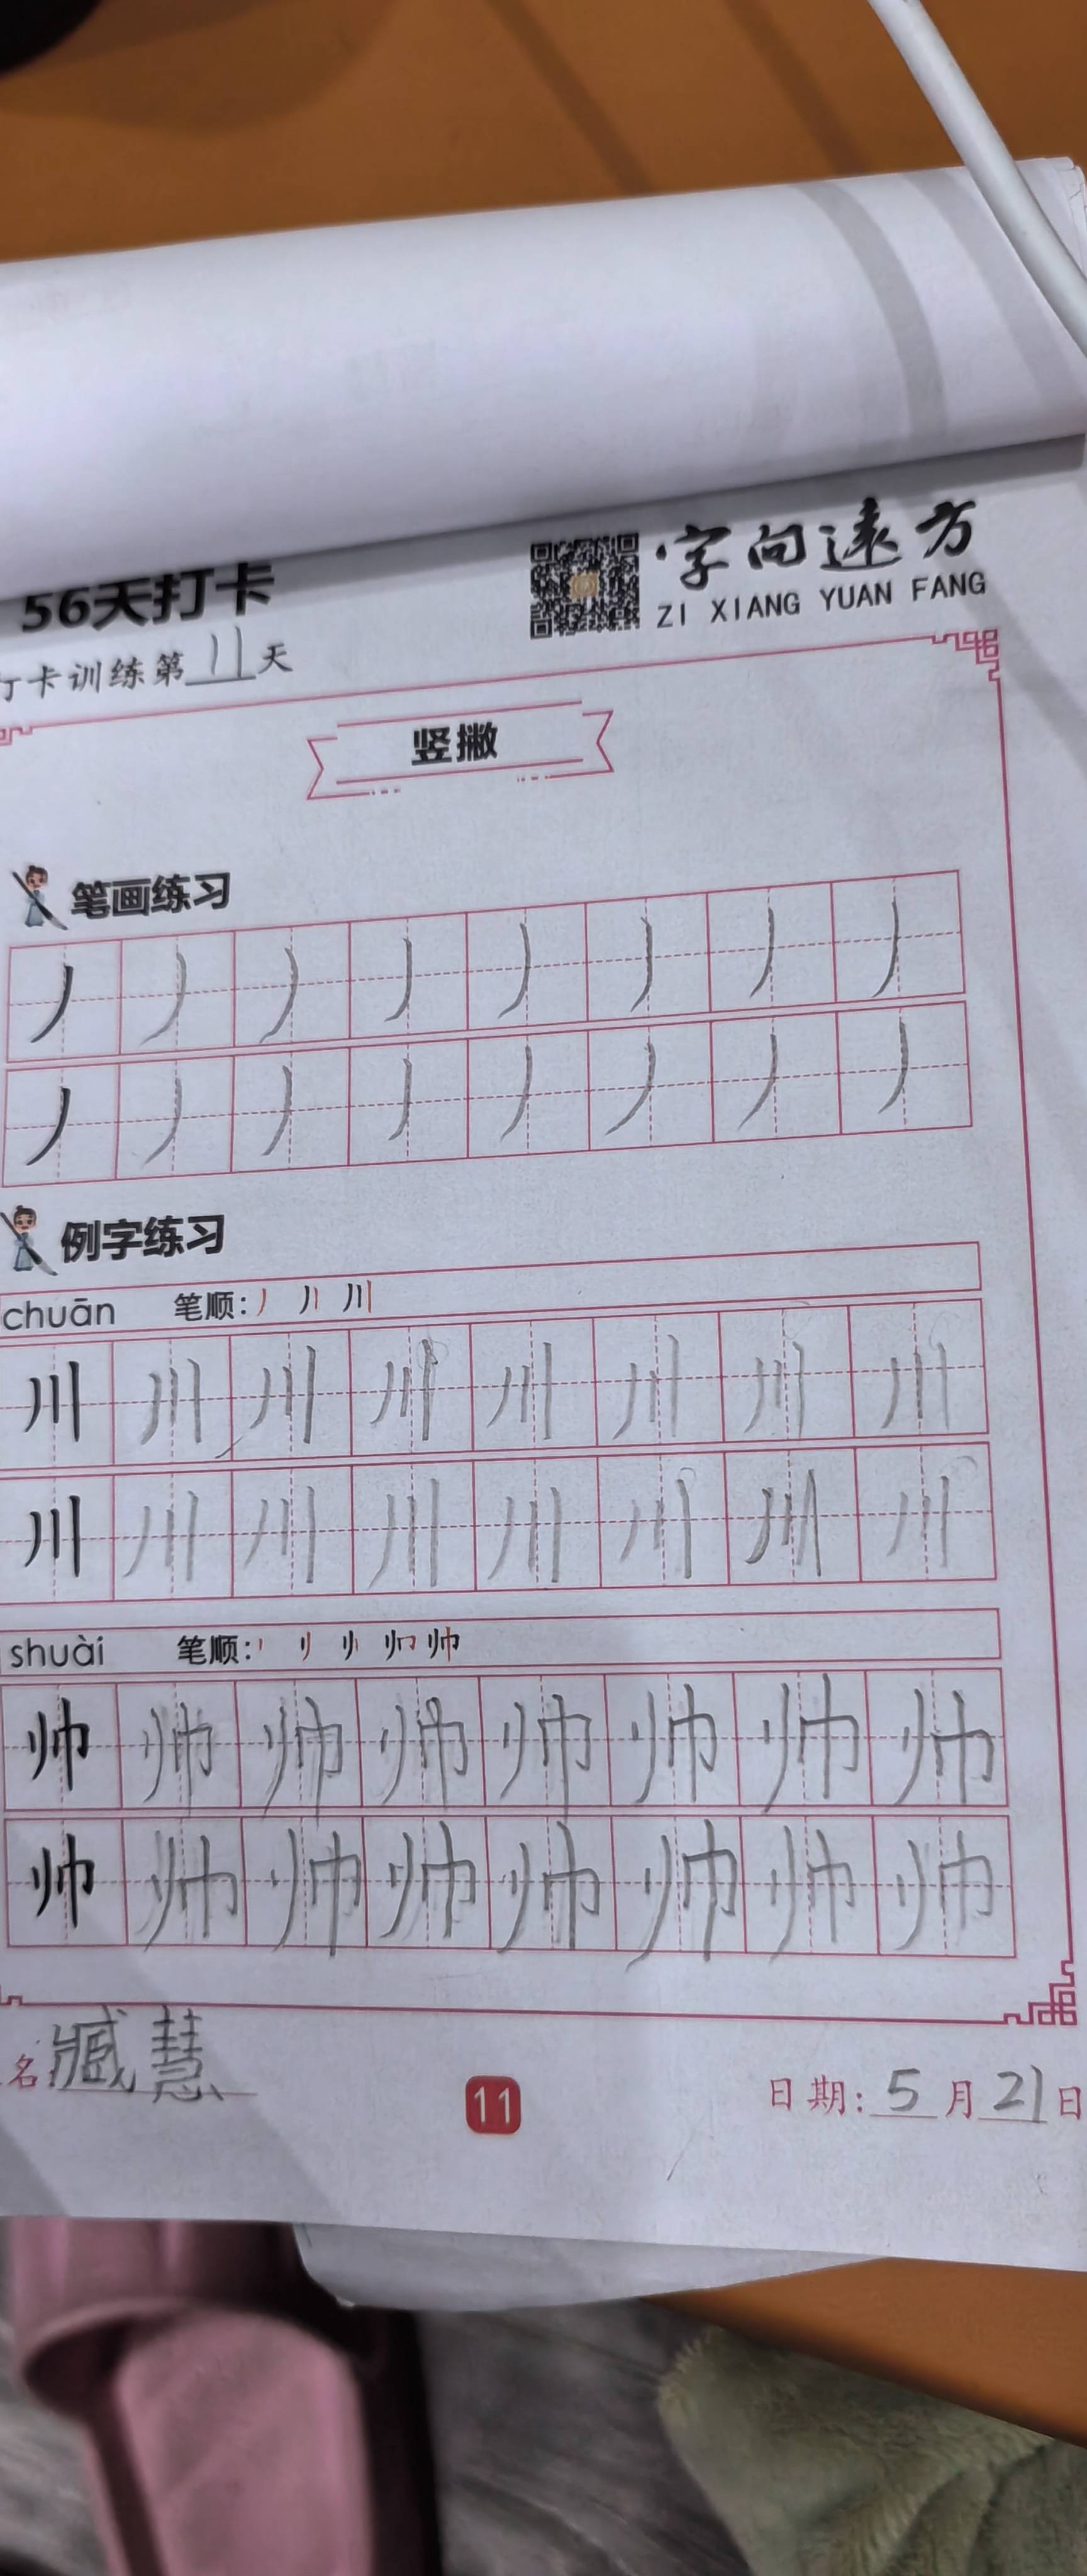 56天打卡
字向远方
ZI XIANG YUAN FANG
打卡训练第11天
竖撇
笔画练习
丿丿丿丿丿丿丿丿
丿丿丿丿丿丿丿丿
例字练习
chuān 笔顺:
川川川川川川川川
川川川川川川川川
shuài 笔顺:
帅帅帅帅帅帅帅帅
帅帅帅帅帅帅帅帅
名:臧慧
11
日期:5月21日